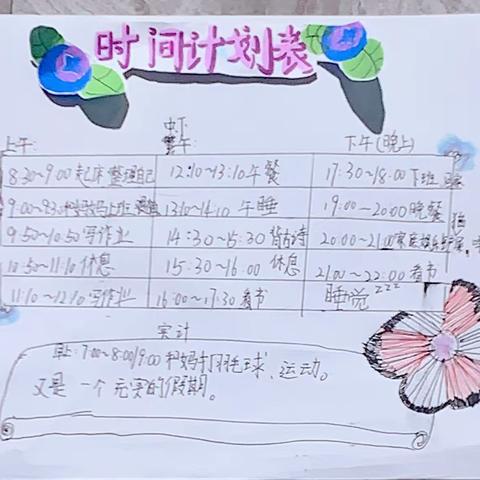 时间计划表
上午: 中午: 下午(晚上)
8:30~9:00 起床整理自己 12:10~13:10 午餐 17:30~18:00 下班
9:00~9:30 上班 13:10~14:10 午睡 19:00~20:00 晚餐
9:50~10:50 写作业 14:30~15:30 背古诗 20:00~21:00
10:50~11:10 休息 15:30~16:00 休息 21:00~22:00 看书
11:10~12:10 写作业 16:00~17:30 看书 睡觉 zzz
实计
晚上: 7:00~8:00/9:00 和妈妈打羽毛球、运动。
又是一个充实的假期。